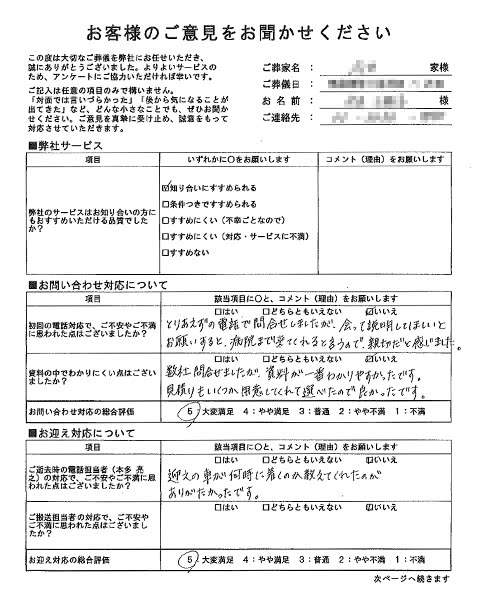 お客様のご意見をお聞かせください
この度は大切なご葬儀を弊社にお任せいただき、
誠にありがとうございました。よりよいサービスの
ため、アンケートにご協力いただければ幸いです。
ご記入は任意の項目のみで構いません。
「対面では言いづらかった」「後から気になることが
出てきた」など、どんな小さなことでも、ぜひお聞か
せください。ご意見を真摯に受け止め、誠意をもって
対応させていただきます。
ご葬家名： 家様
ご葬儀日：
お名前： 様
ご連絡先：
■弊社サービス
項目 いずれかに○をお願いします コメント（理由）をお願いします
弊社のサービスはお知り合いの方に
もおすすめいただける品質でした
か？
☑知り合いにすすめられる
□条件つきですすめられる
□すすめにくい（不幸ごとなので）
□すすめにくい（対応・サービスに不満）
□すすめない
■お問い合わせ対応について
項目 該当項目に○と、コメント（理由）をお願いします
初回の電話対応で、ご不安やご不満
に思われた点はございましたか？
□はい □どちらともいえない ☑いいえ
とりあえずの電話で問合せしましたが、会って説明してほしいと
お願いすると、病院まで来てくれると言うので、親切だと感じました。
資料の中でわかりにくい点はござい
ましたか？
□はい □どちらともいえない ☑いいえ
数社問合せましたが、資料が一番わかりやすかったです。
見積りもいくつか用意してくれて選べたので良かったです。
お問い合わせ対応の総合評価 5：大変満足 4：やや満足 3：普通 2：やや不満 1：不満
■お迎え対応について
項目 該当項目に○と、コメント（理由）をお願いします
ご逝去時の電話担当者（本多 亮
之）の対応で、ご不安やご不満に思
われた点はございましたか？
□はい □どちらともいえない ☑いいえ
迎えの車が何時に着くのか教えてくれたのが
ありがたかったです。
ご搬送担当者の対応で、ご不安や
ご不満に思われた点はございまし
たか？
□はい □どちらともいえない ☑いいえ
お迎え対応の総合評価 5：大変満足 4：やや満足 3：普通 2：やや不満 1：不満
次ページへ続きます